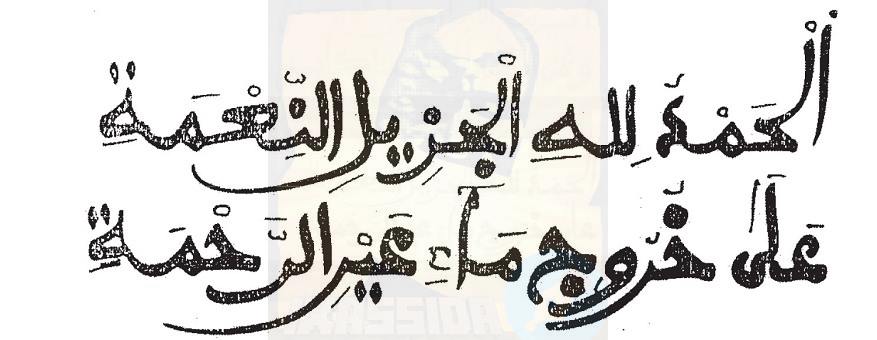 اَلْحَمْدُ لِلهِ الْجَزِيلِ النِّعْمَةِ
عَلَى خُرُوجِ مَاءِ عَيْنِ الرَّحْمَةِ
KASSIDA